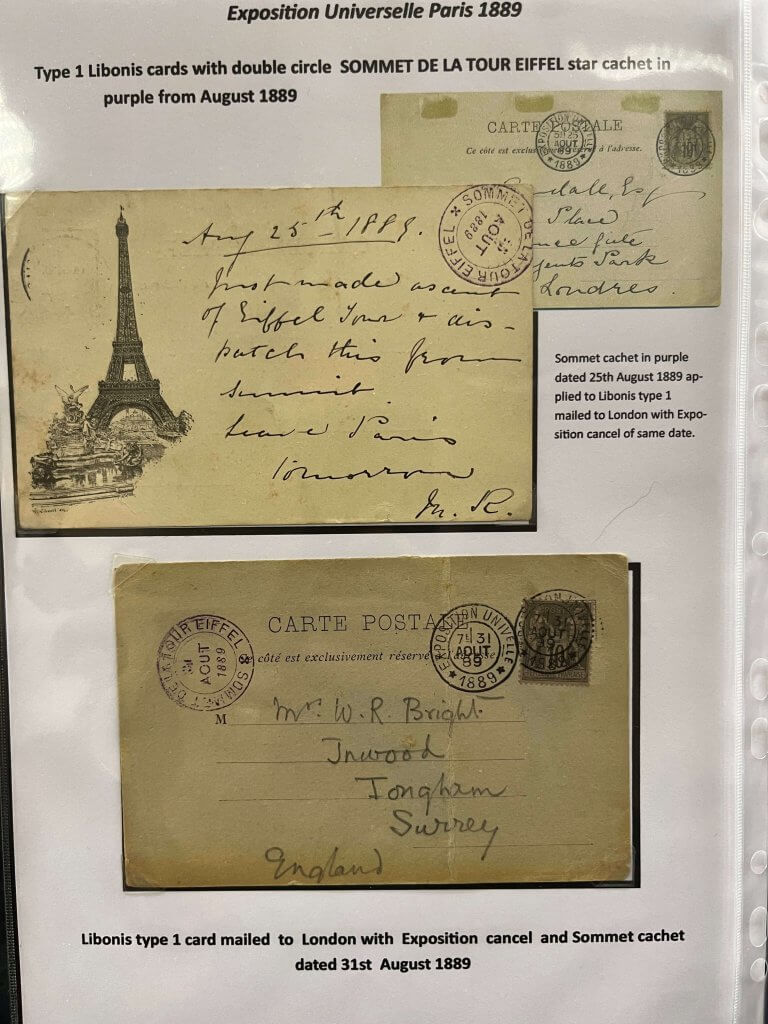 Exposition Universelle Paris 1889
Type 1 Libonis cards with double circle SOMMET DE LA TOUR EIFFEL star cachet in
purple from August 1889
CARTE POSTALE
Ce côté est exclusivement réservé à l'adresse.
EXPOSITION UNIVELLE
5H 25
AOUT
89
*1889*
Esq
Place
gate
Park
Londres.
Aug 25th 1889.
SOMMET DE LA TOUR EIFFEL
AOUT
1889
Just made ascent
of Eiffel Tour & dis-
patch this from
summit.
Leave Paris
tomorrow
M. R.
Sommet cachet in purple
dated 25th August 1889 ap-
plied to Libonis type 1
mailed to London with Expo-
sition cancel of same date.
CARTE POSTALE
Ce côté est exclusivement réservé à l'adresse
SOMMET DE LA TOUR EIFFEL
31
AOUT
1889
EXPOSITION UNIVELLE
7H 31
AOUT
89
*1889*
31
AOUT
M
Mrs W. R. Bright
Inwood
Tongham
Surrey
England
Libonis type 1 card mailed to London with Exposition cancel and Sommet cachet
dated 31st August 1889